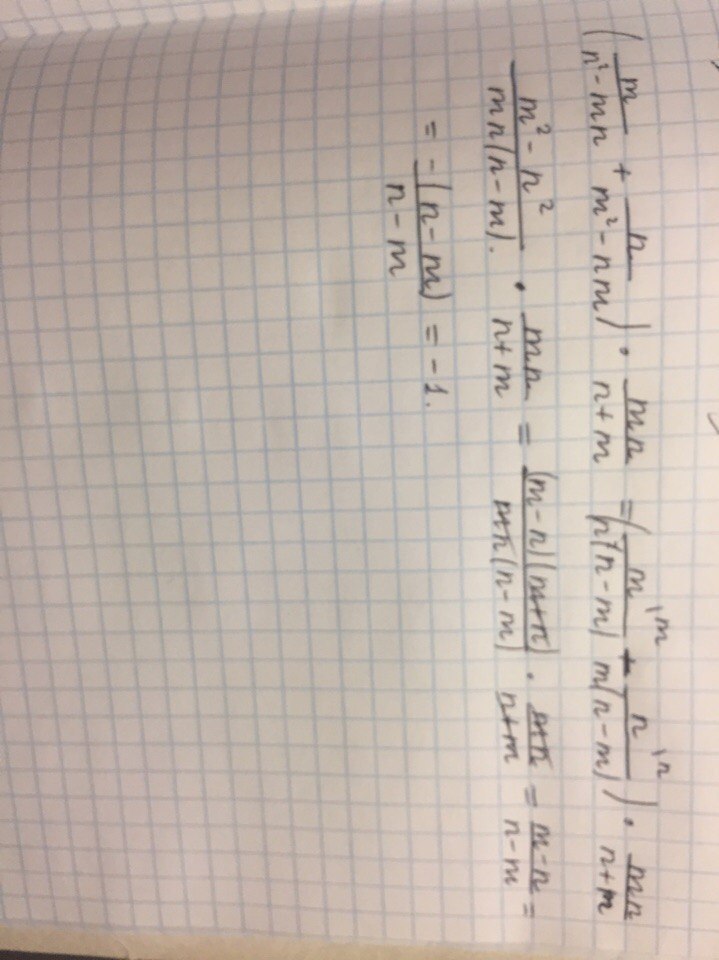 (m/(n²-mn) + n/(m²-nm)) · mn/(n+m) = (m/(n(n-m)) - n/(m(n-m))) · mn/(n+m)
(m²-n²)/(mn(n-m)) · mn/(n+m) = ((m-n)(m+n))/(mn(n-m)) · mn/(n+m) = (m-n)/(n-m) =
= -(n-m)/(n-m) = -1.